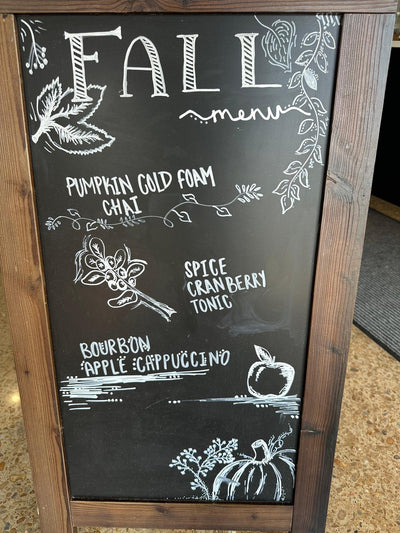 FALL
menu
PUMPKIN COLD FOAM
CHAI
SPICE
CRANBERRY
TONIC
BOURBON
APPLE CAPPUCCINO